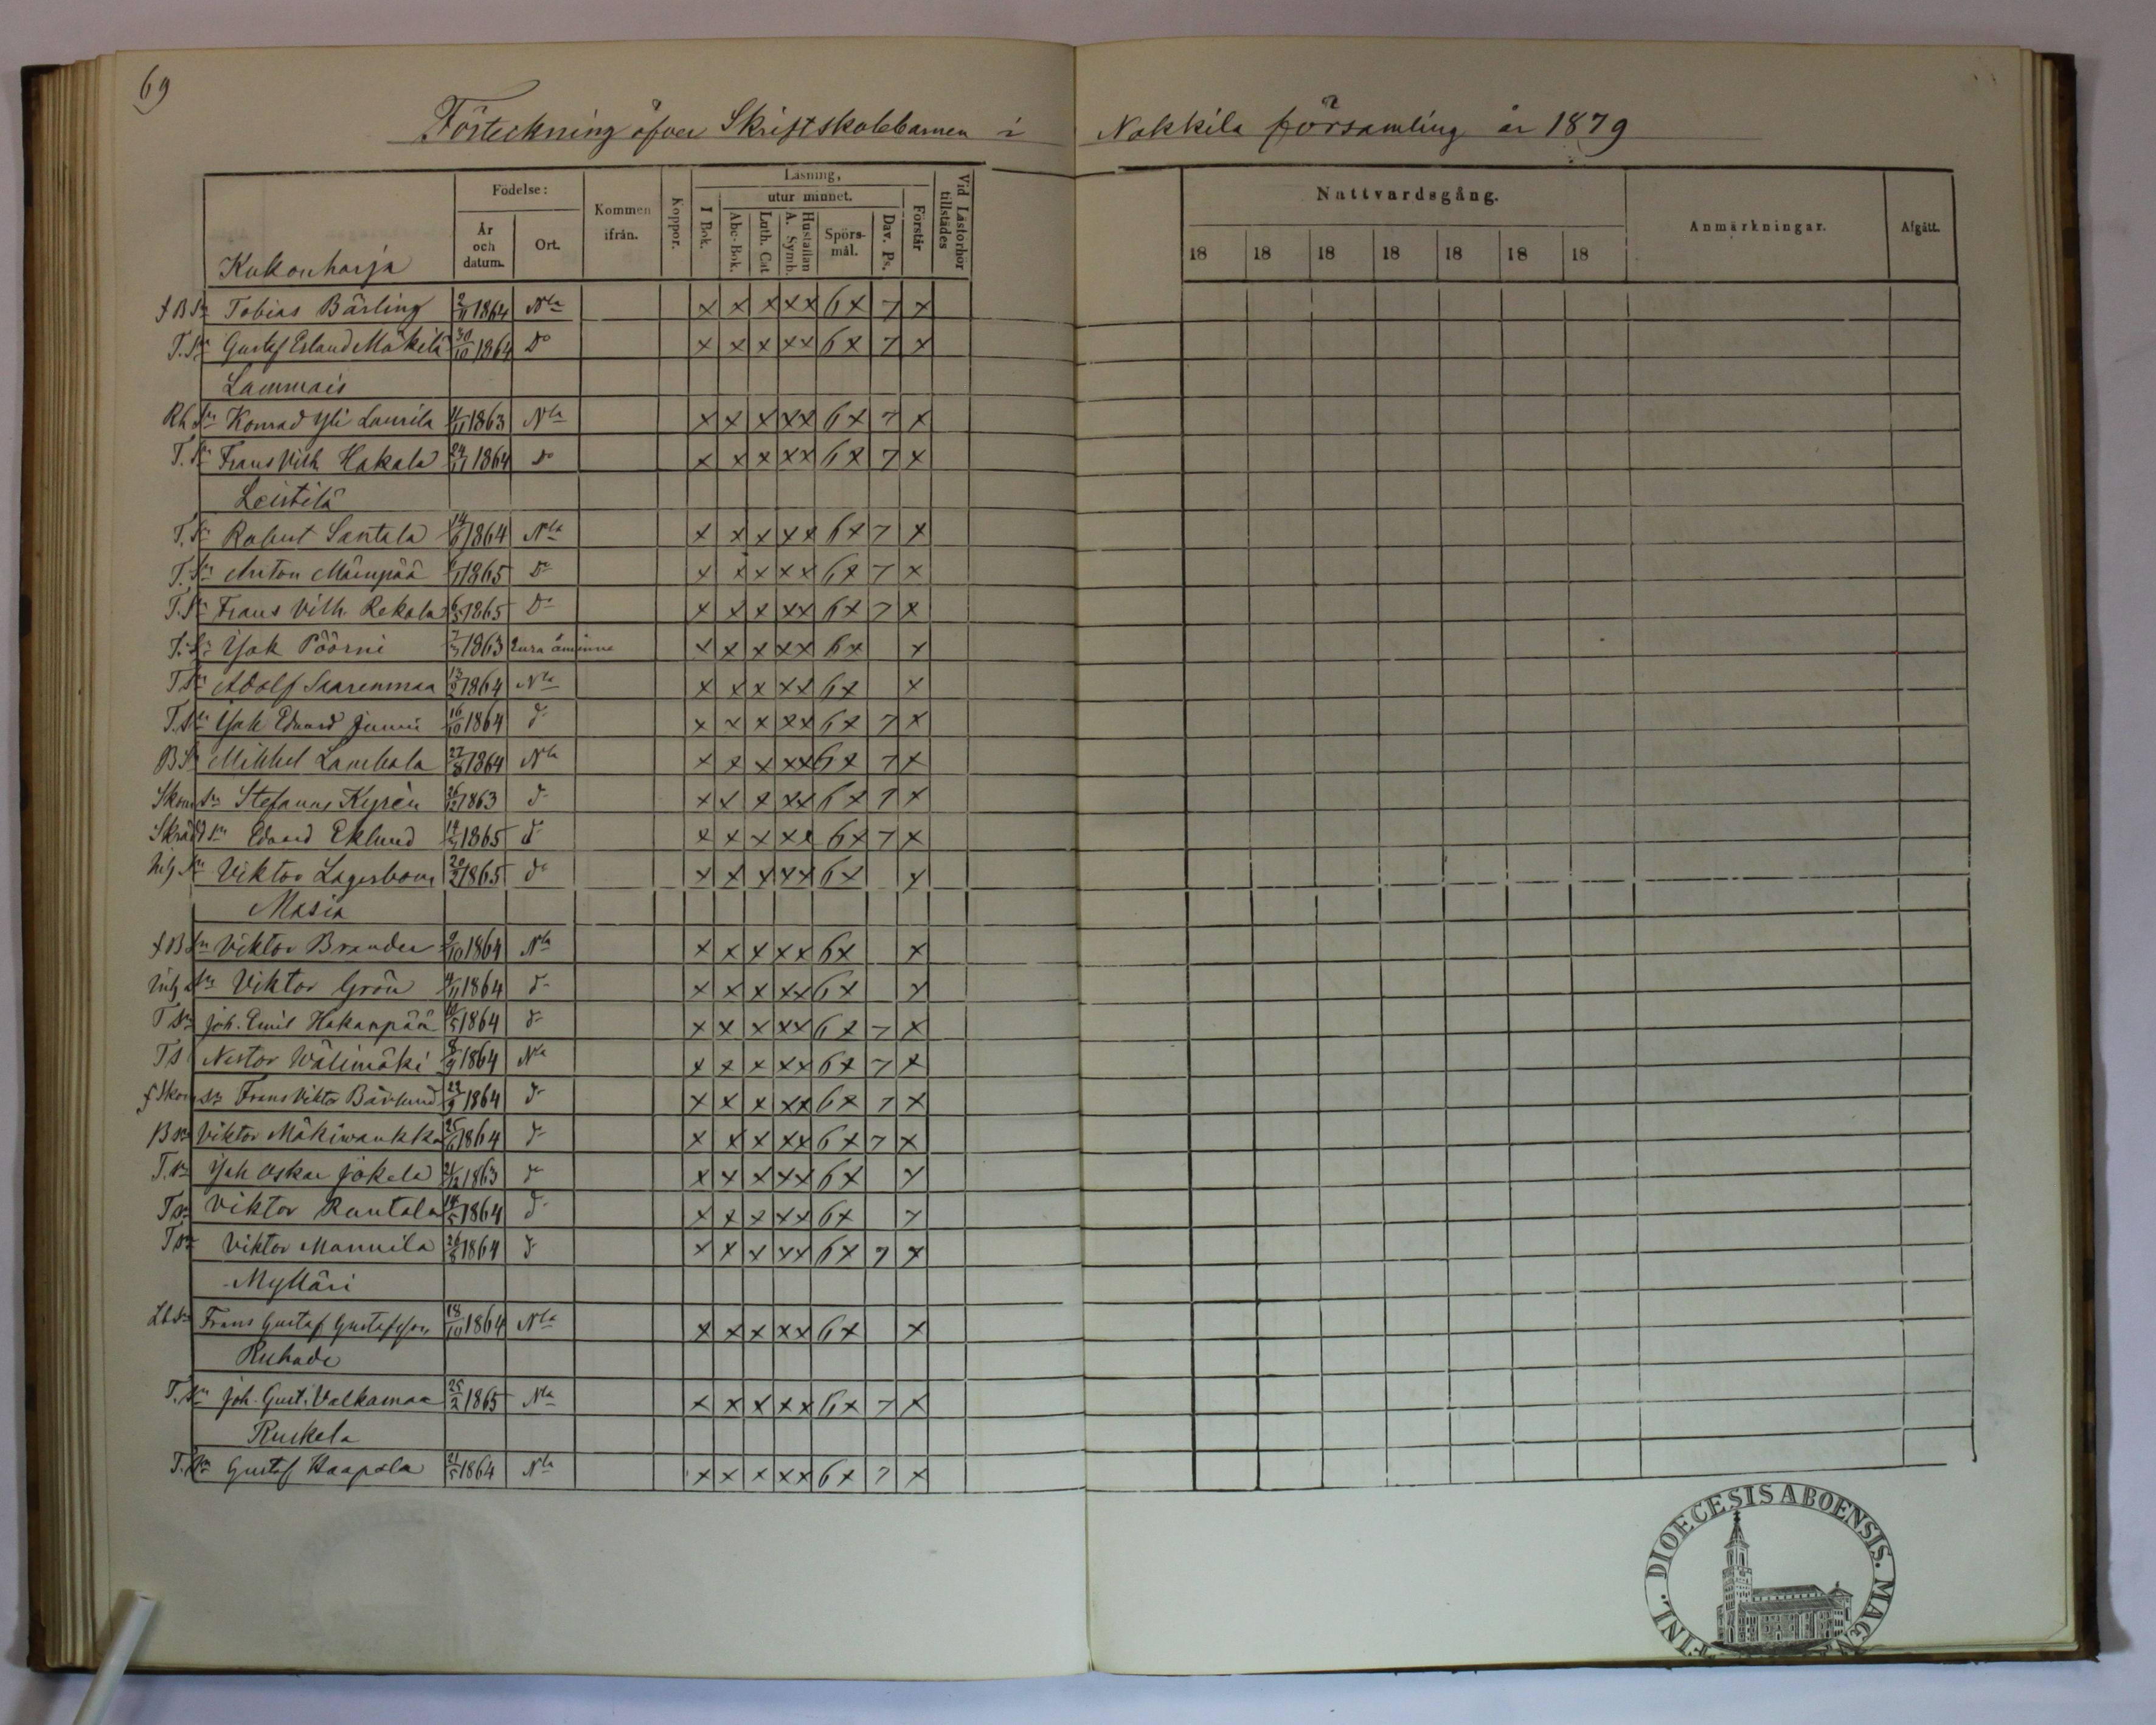 69
Förteckning öfver Skriftskolebarnen i Nakkila församling år 1879
Födelse: Kommen ifrån. Koppor. Läsning, Vid Läsförhör tillstädes Nattvardsgång. Anmärkningar. Afgått.
År och datum. Ort. I Bok. utur minnet. Förstår
Abc-Bok. Luth. Cat. Hustaflan A. Symb. Spörsmål. Dav. Ps. 18 18 18 18 18 18 18
Kukonharja
f B Sn Tobias Bärling 2/11 1864 Nla x x x x x 6 x 7 x
T. Sn Gustaf Erland Mäkilä 30/10 1864 Do x x x x x 6 x 7 x
Lammais
Rh Sn Konrad Yli Laurila 1863 Nla x x x x x 6 x 7 x
T. Sn Frans Vilh Hakala 24/11 1864 Do x x x x x 6 x 7 x
Leistilä
T. Sn Robert Santala 1864 Nla x x x x x 6 x 7 x
T. Sn Anton Mämpää 1865 Do x x x x x 6 x 7 x
T. Sn Frans Vilh. Rekola 6/5 1865 Do x x x x x 6 x 7 x
Isak Pöörni 1863 Eura åminne x x x x x 6 x x
T Sn Adolf Saarenmaa 1864 Nla x x x x x 6 x x
T. Sn Isak Eduard Junni 16/10 1864 d x x x x x 6 x 7 x
B Sn Mikkel Lamhala 27/8 1864 Nla x x x x x 6 x 7 x
Skom sn Stefanus Kyrén 26/12 1863 d x x x x x 6 x 7 x
Skrädd sn Edvard Eklund 1865 d x x x x x 6 x 7 x
Viktor Lagerbom 20/2 1865 do x x x x x 6 x x
Masia
f B Sn Viktor Brander 9/10 1864 Nla x x x x x 6 x x
Sn Viktor Grön 1864 d x x x x x 6 x x
T Sn Joh. Emil Hakanpää 1864 d x x x x x 6 x 7 x
T S Nestor Wälimäki 8/9 1864 Nla x x x x x 6 x 7 x
f Skom sn Frans Viktor Bärlund 22/9 1864 d x x x x x 6 x 7 x
B sn Viktor Mäkiwankka 1864 d x x x x x 6 x 7 x
T. sn Joh Oskar Jokela 21/12 1863 d x x x x x 6 x x
T sn Viktor Rantala 14/5 1864 d x x x x x 6 x x
T sn Viktor Mannila 26/8 1864 d x x x x x 6 x 7 x
Mylläri
Frans Gustaf Gustafsson 18/10 1864 Nla x x x x x 6 x x
Ruhade
T. Sn Joh. Gust. Valkamaa 25/2 1865 Nla x x x x x 6 x 7 x
Ruskela
T. Sn Gustaf Haapala 21/5 1864 Nla x x x x x 6 x 7 x
FINL. DIOECESIS ABOENSIS. MAGN